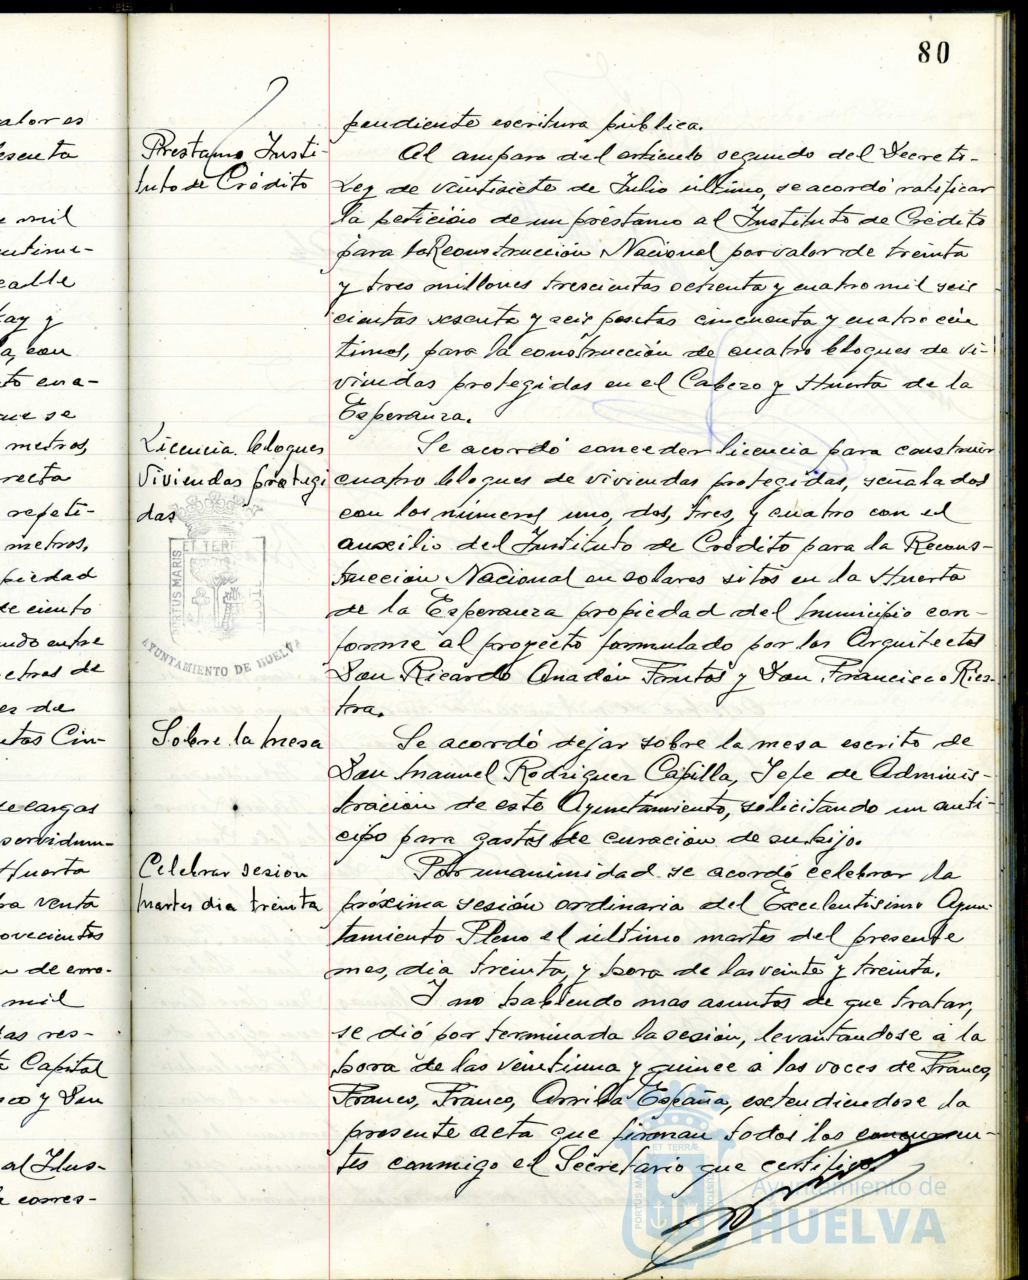 80
alores
esenta
e mil
eable
ay y
a, con
to cua-
que se
metros,
recta
repeti-
metros,
piedad
de ciento
ndo entre
etros de
es de
ntas Cin-
de cargas
servidum-
Huerta
ra venta
ovecientos
n de erro-
mil
tas res-
Capital
sco y Don
al Ilus-
corres-
Prestamo Insti-
tuto de Crédito
pendiente escritura pública.
Al amparo del artículo segundo del Decreto-
Ley de veintisiete de Julio último, se acordó ratificar
la petición de un préstamo al Instituto de Crédito
para la Reconstrucción Nacional por valor de treinta
y tres millones trescientas ochenta y cuatro mil seis
cientas sesenta y seis pesetas cincuenta y cuatro cén
timos, para la construcción de cuatro bloques de vi-
viendas protegidas en el Cabezo y Huerta de la
Esperanza.
Licencia bloques
Viviendas protegi
das
Se acordó conceder licencia para construir
cuatro bloques de viviendas protegidas, señalados
con los números uno, dos, tres, y cuatro con el
auxilio del Instituto de Crédito para la Recons-
trucción Nacional en solares sitos en la Huerta
de la Esperanza propiedad del municipio con-
forme al proyecto formulado por los Arquitectos
Don Ricardo Anadón Frutos y Don Francisco Ries-
tra.
PORTUS MARIS
ET TERR
AYUNTAMIENTO DE HUELVA
Sobre la mesa
Se acordó dejar sobre la mesa escrito de
Don Manuel Rodriguez Capilla, Jefe de Adminis-
tración de este Ayuntamiento, solicitando un anti-
cipo para gastos de curación de su hijo.
Celebrar sesion
martes dia treinta
Por unanimidad se acordó celebrar la
próxima sesión ordinaria del Excelentísimo Ayun-
tamiento Pleno el último martes del presente
mes, dia treinta, y hora de las veinte y treinta.
Y no habiendo mas asuntos de que tratar,
se dió por terminada la sesión, levantandose a la
hora de las veintiuna y quince a las voces de Franco,
Franco, Franco, Arriba España, extendiendose la
presente acta que firman todos los concurren-
tes conmigo el Secretario que certifico.
ET TERRÆ
PORTUS MARIS
Ayuntamiento de
HUELVA